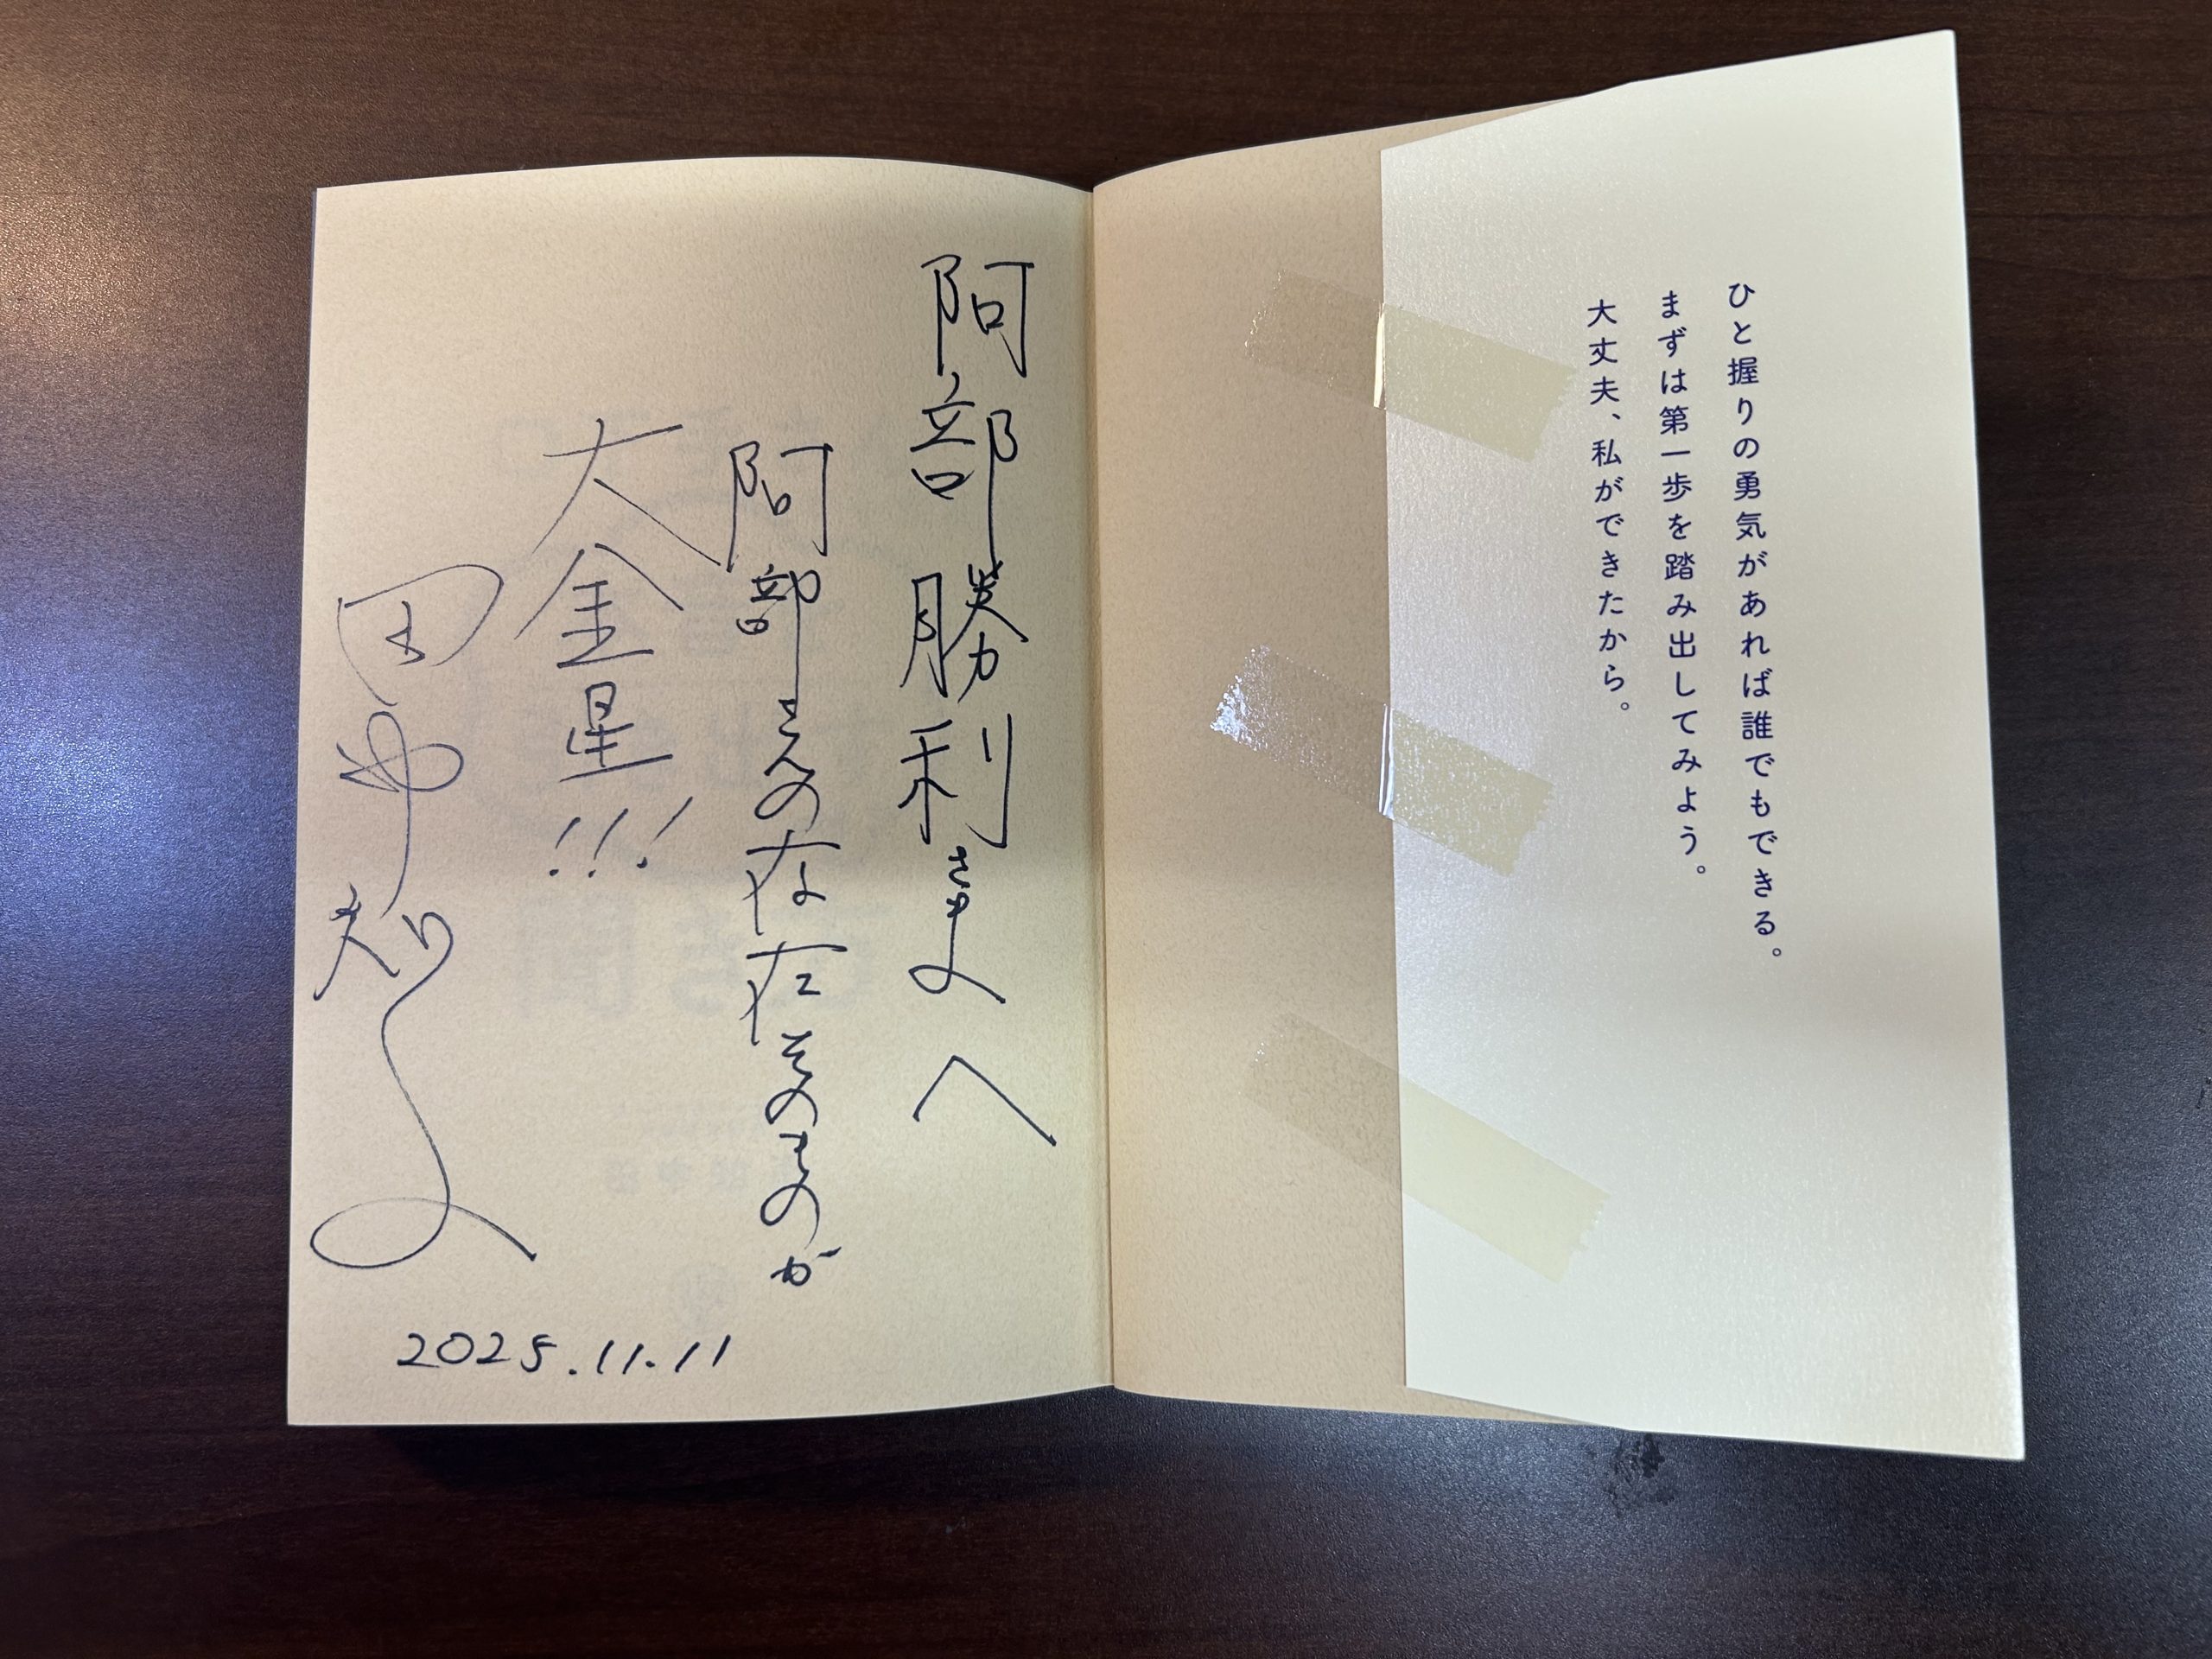 ひと握りの勇気があれば誰でもできる。
まずは第一歩を踏み出してみよう。
大丈夫、私ができたから。
阿部勝利さまへ
阿部さんの存在そのものが
大金星!!!
2025.11.11